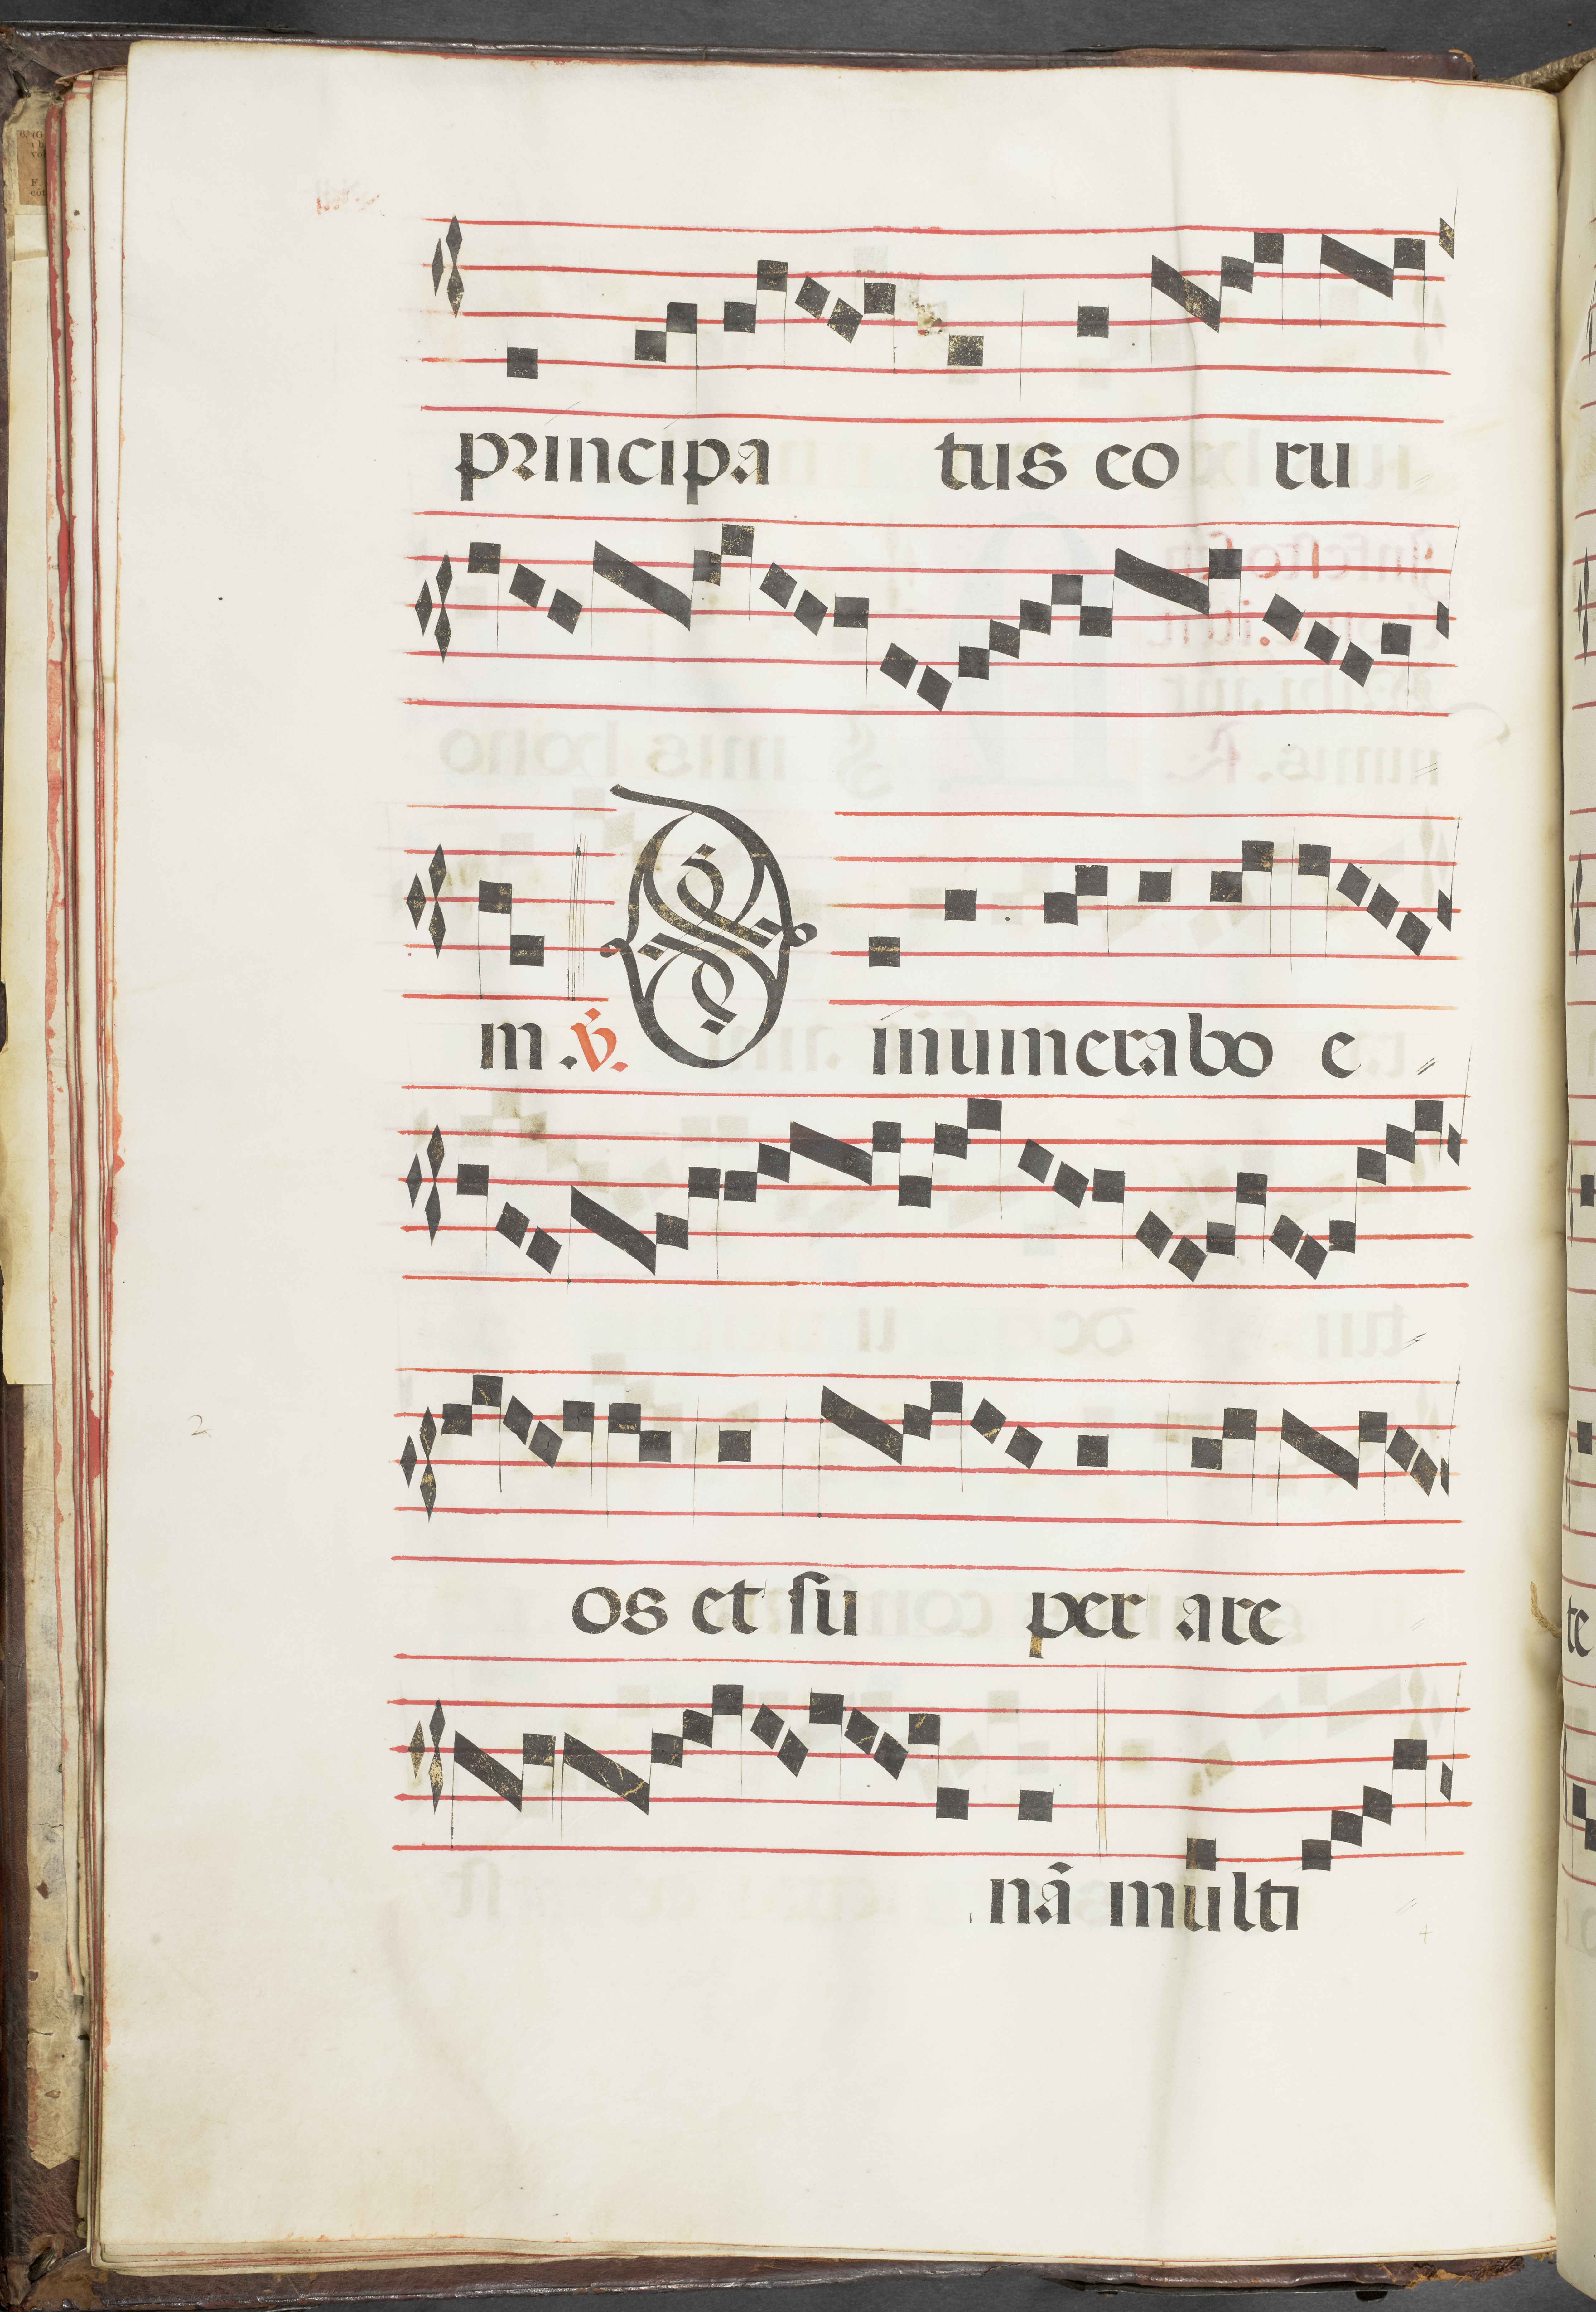 principa tus eo ru
m. ℣. Dinumerabo e
os et ſu per are
nã multi
2
te